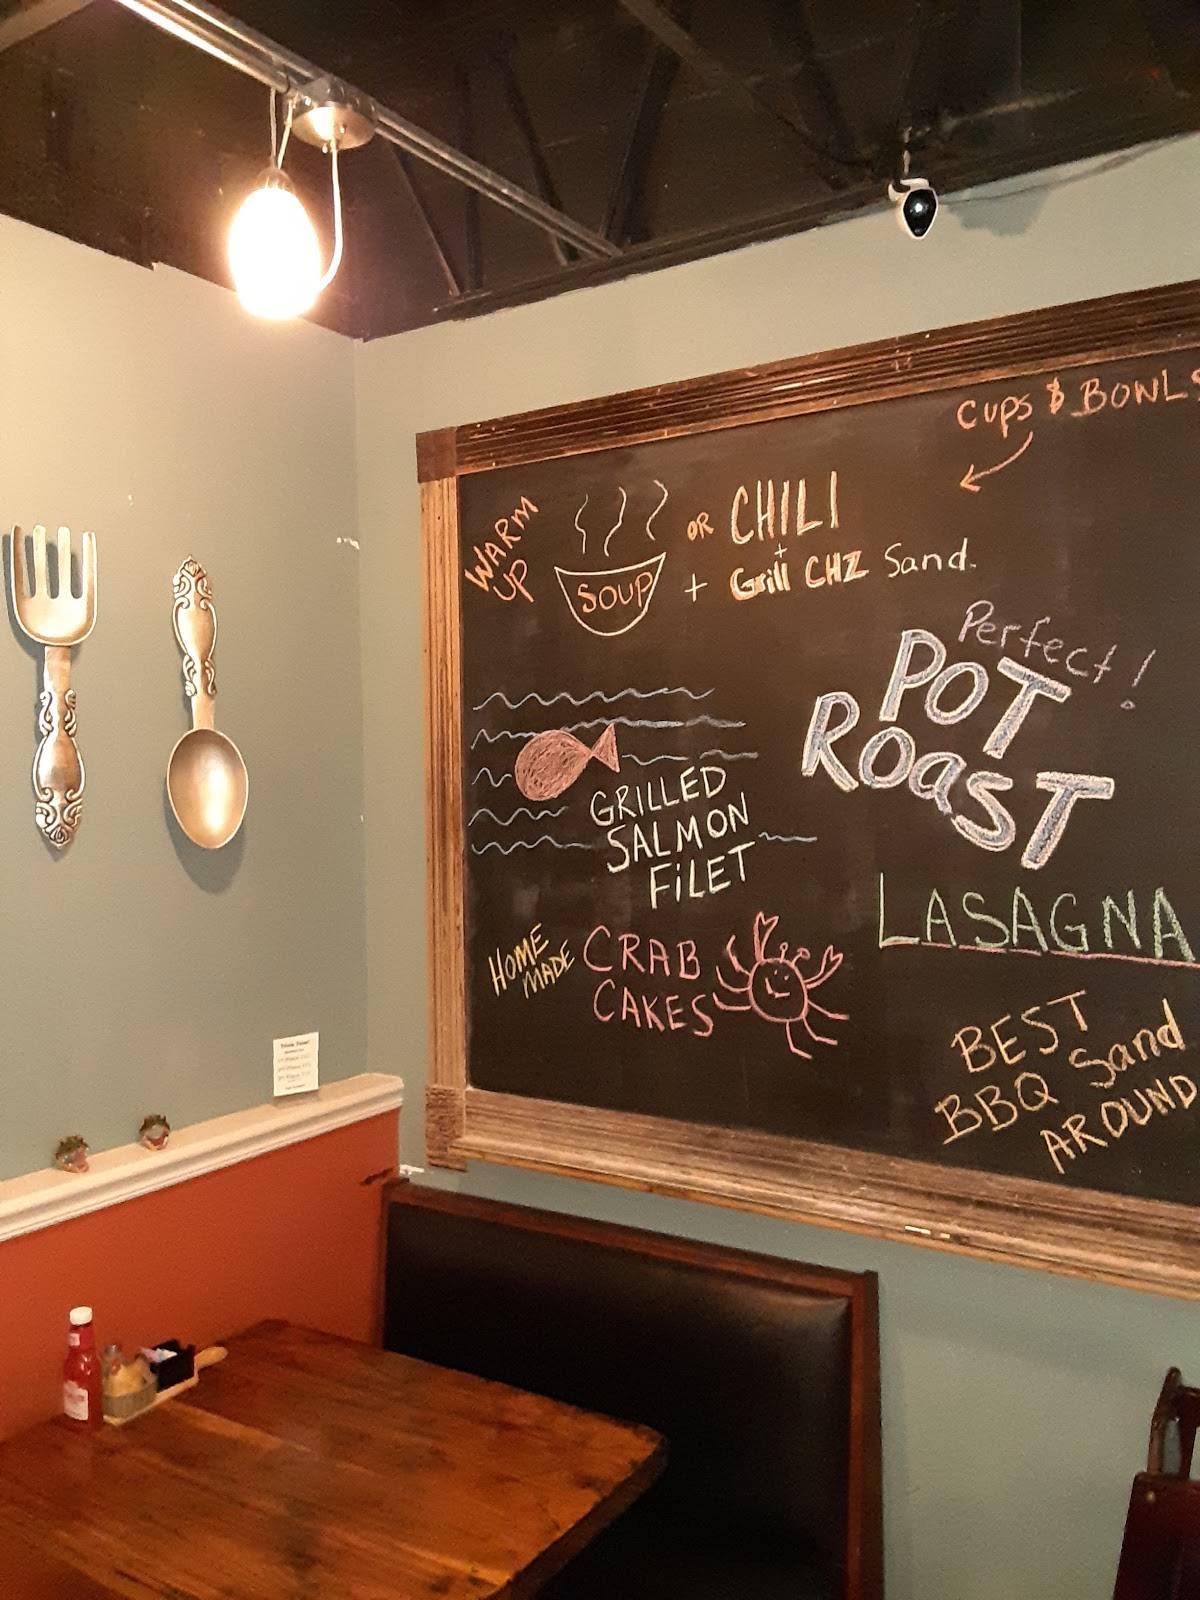 Cups & BOWLS
WARM
UP
SOUP
OR CHILI
+
+ Grill CHZ Sand.
Perfect!
POT
ROaST
GRILLED
SALMON
FiLET
LASAGNA
HOME
MADE
CRAB
CAKES
BEST
BBQ Sand
AROUND